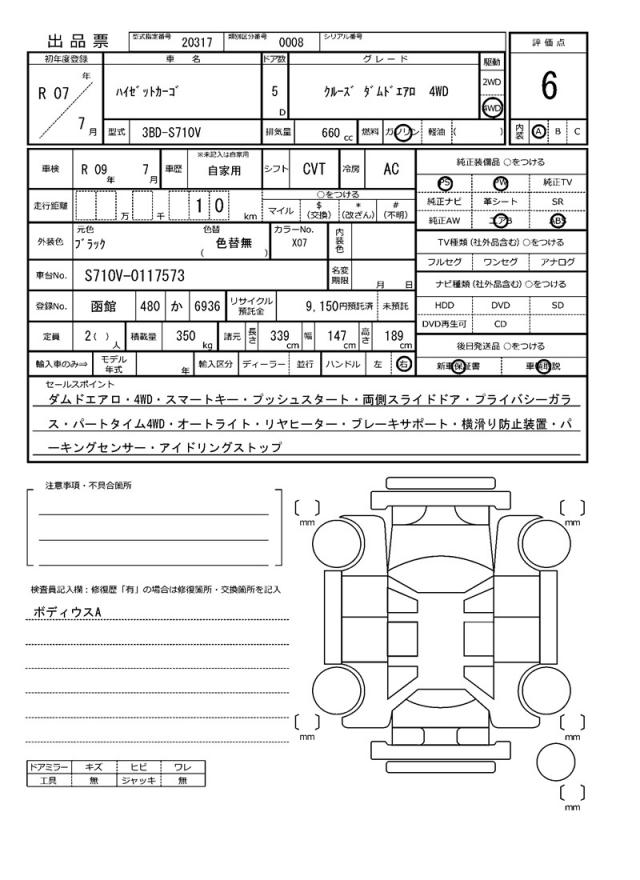 出品票 型式指定番号 20317 類別区分番号 0008 シリアル番号
評価点
6
内装 A B C
初年度登録 車名 ドア数 グレード 駆動
R 07 年 7 月 ハイゼットカーゴ 5 D クルーズ ダムドエアロ 4WD 2WD 4WD
型式 3BD-S710V 排気量 660 cc 燃料 ガソリン 軽油 ( )
車検 R 09 年 7 月 車歴 ※未記入は自家用 自家用 シフト CVT 冷房 AC
走行距離 万 千 1 0 km ○をつける マイル $(交換) *(改ざん) #(不明)
外装色 元色 ブラック 色替 色替無 ( ) カラーNo. X07 内装色
車台No. S710V-0117573 名変期限 月 日
登録No. 函館 480 か 6936 リサイクル預託金 9,150円預託済 未預託
定員 2( ) 人 積載量 350 kg 諸元 長さ 339 cm 幅 147 cm 高さ 189 cm
輸入車のみ⇒ モデル年式 年 輸入区分 ディーラー 並行 ハンドル 左 右
純正装備品 ○をつける
PS PW 純正TV
純正ナビ 革シート SR
純正AW エアB ABS
TV種類(社外品含む) ○をつける
フルセグ ワンセグ アナログ
ナビ種類(社外品含む) ○をつける
HDD DVD SD
DVD再生可 CD
後日発送品 ○をつける
新車保証書 車輌取説
セールスポイント
ダムドエアロ・4WD・スマートキー・プッシュスタート・両側スライドドア・プライバシーガラ
ス・パートタイム4WD・オートライト・リヤヒーター・ブレーキサポート・横滑り防止装置・パ
ーキングセンサー・アイドリングストップ
注意事項・不具合箇所
検査員記入欄：修復歴「有」の場合は修復箇所・交換箇所を記入
ボディウスA
ドアミラー キズ ヒビ ワレ
工具 無 ジャッキ 無
mm
mm
mm
mm
mm